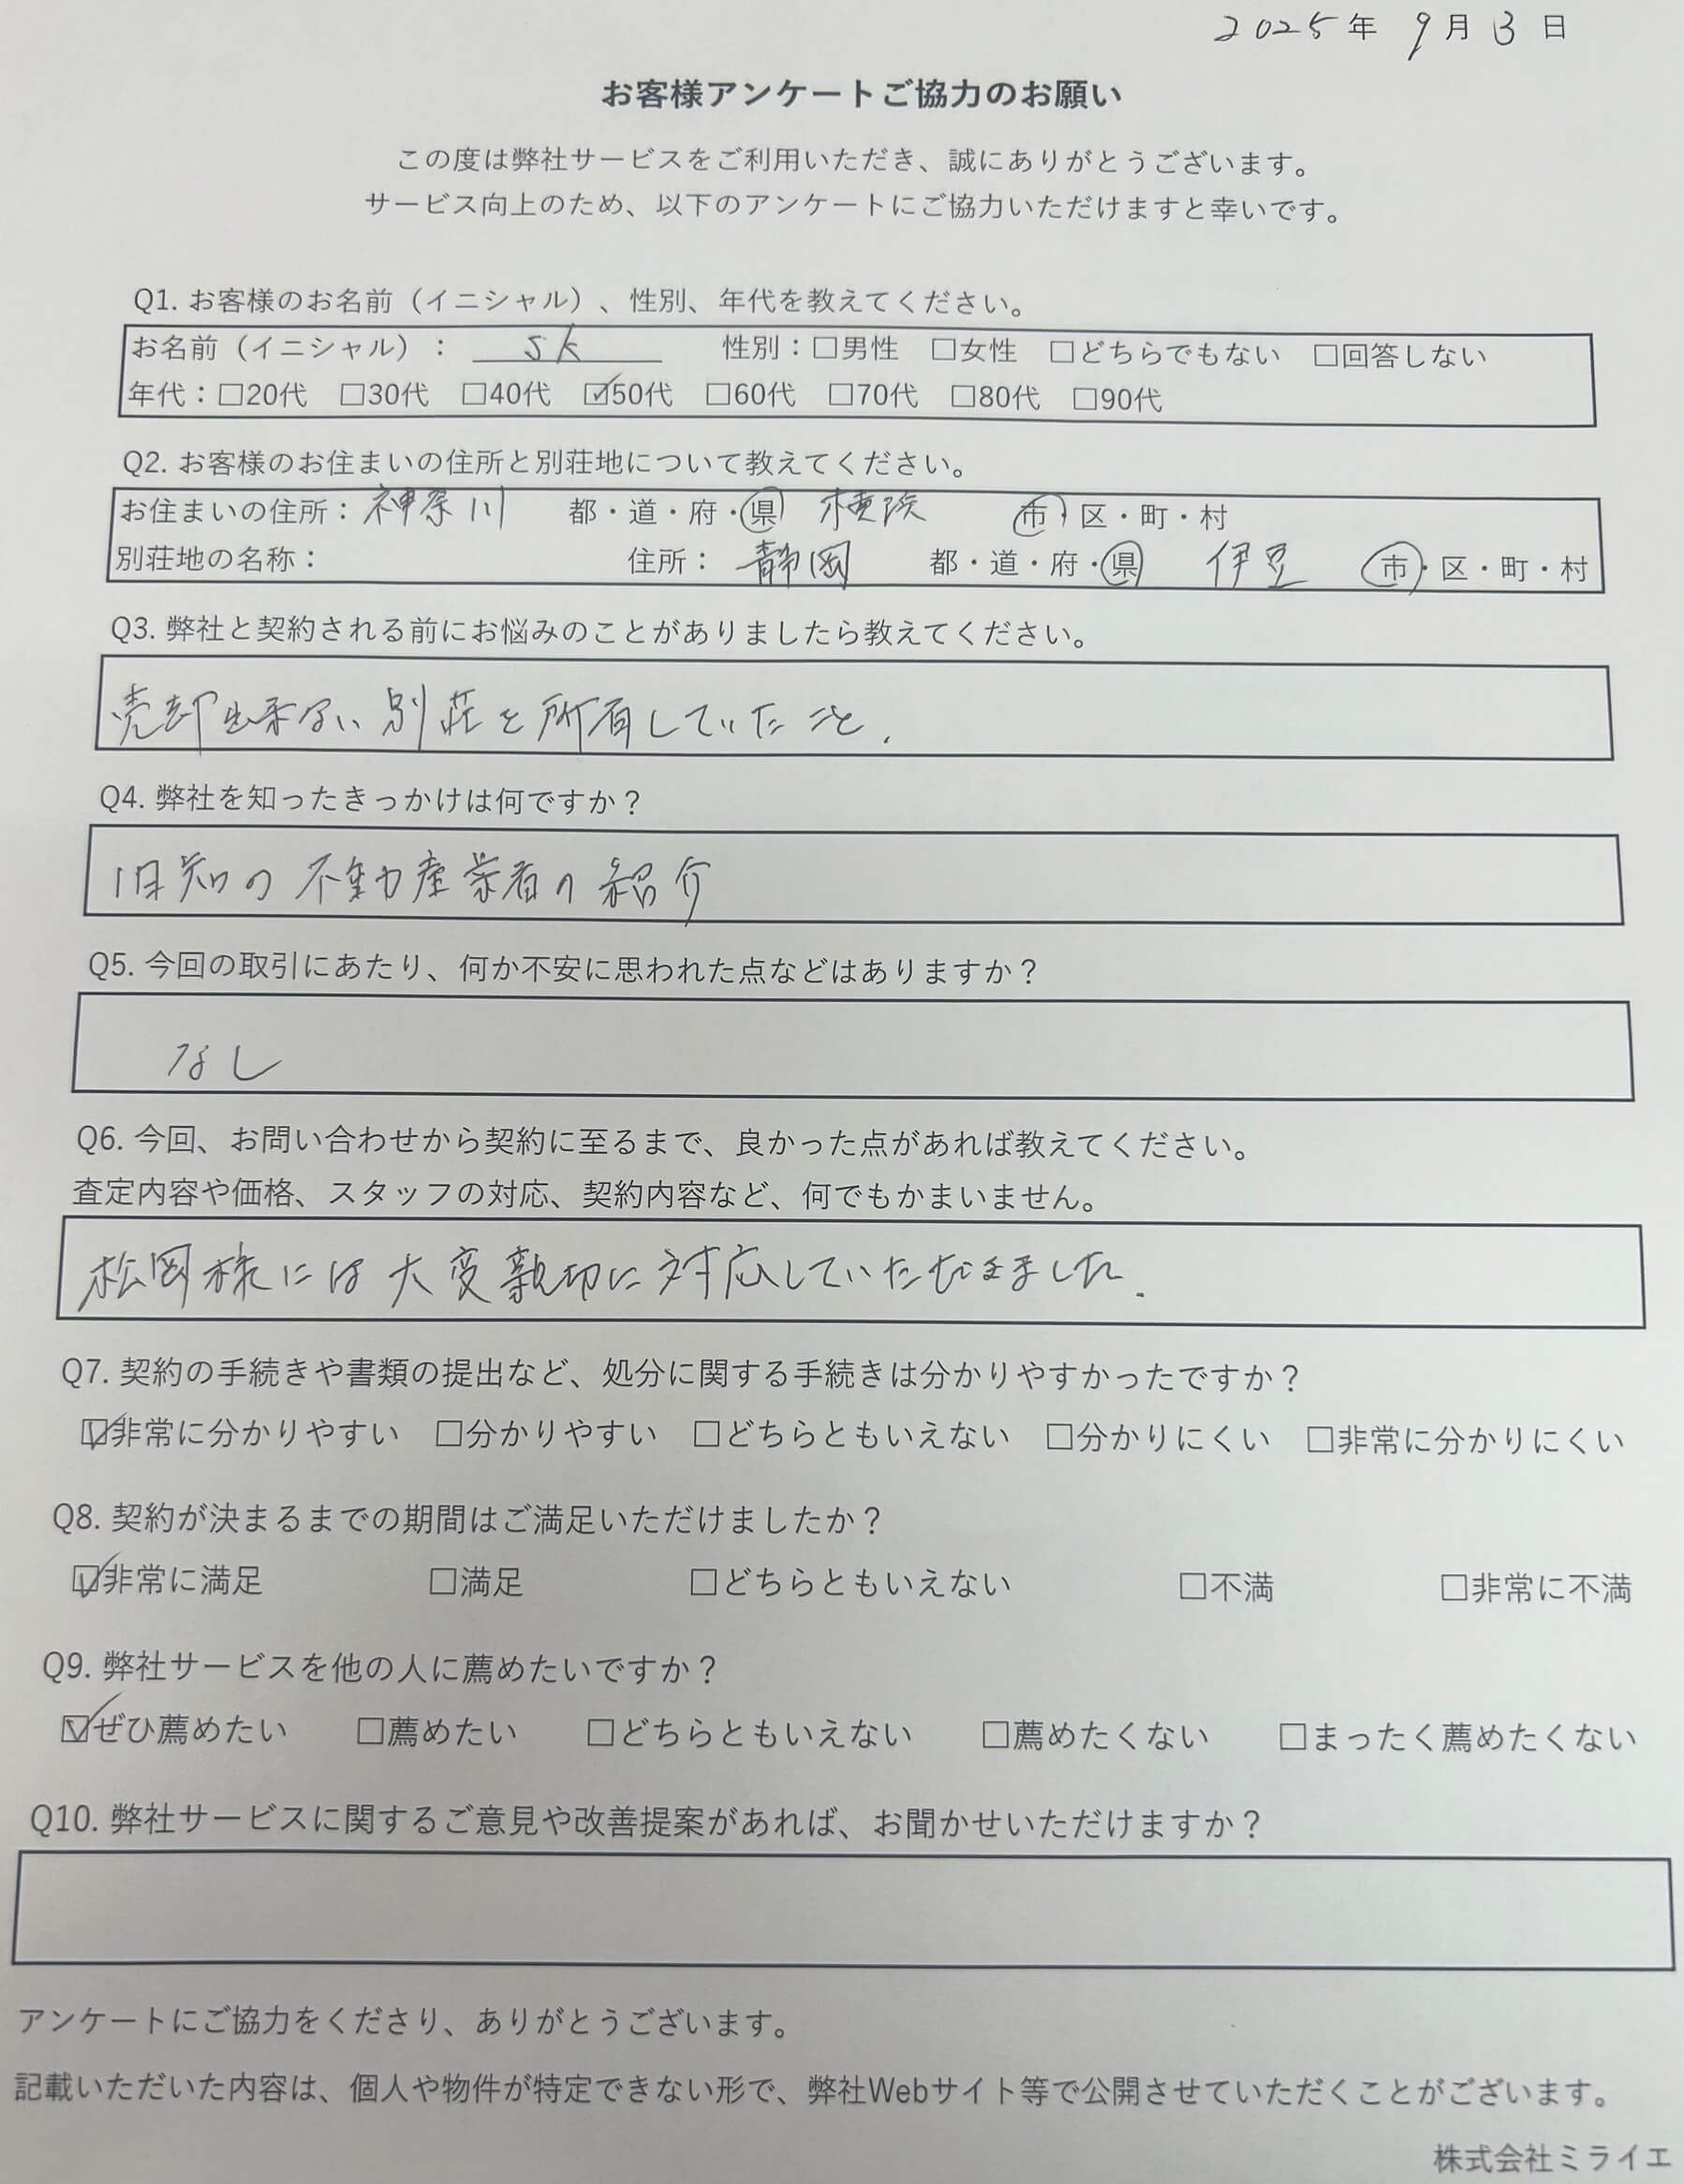 2025年 9月 3日
お客様アンケートご協力のお願い
この度は弊社サービスをご利用いただき、誠にありがとうございます。
サービス向上のため、以下のアンケートにご協力いただけますと幸いです。
Q1. お客様のお名前（イニシャル）、性別、年代を教えてください。
お名前（イニシャル）： SK 性別：□男性 □女性 □どちらでもない □回答しない
年代：□20代 □30代 □40代 ☑50代 □60代 □70代 □80代 □90代
Q2. お客様のお住まいの住所と別荘地について教えてください。
お住まいの住所：神奈川 都・道・府・県 横浜 市・区・町・村
別荘地の名称： 住所： 静岡 都・道・府・県 伊豆 市・区・町・村
Q3. 弊社と契約される前にお悩みのことがありましたら教えてください。
売却出来ない別荘を所有していたこと.
Q4. 弊社を知ったきっかけは何ですか？
旧知の不動産業者の紹介
Q5. 今回の取引にあたり、何か不安に思われた点などはありますか？
なし
Q6. 今回、お問い合わせから契約に至るまで、良かった点があれば教えてください。
査定内容や価格、スタッフの対応、契約内容など、何でもかまいません。
松岡様には大変親切に対応していただきました.
Q7. 契約の手続きや書類の提出など、処分に関する手続きは分かりやすかったですか？
☑非常に分かりやすい □分かりやすい □どちらともいえない □分かりにくい □非常に分かりにくい
Q8. 契約が決まるまでの期間はご満足いただけましたか？
☑非常に満足 □満足 □どちらともいえない □不満 □非常に不満
Q9. 弊社サービスを他の人に薦めたいですか？
☑ぜひ薦めたい □薦めたい □どちらともいえない □薦めたくない □まったく薦めたくない
Q10. 弊社サービスに関するご意見や改善提案があれば、お聞かせいただけますか？
アンケートにご協力をくださり、ありがとうございます。
記載いただいた内容は、個人や物件が特定できない形で、弊社Webサイト等で公開させていただくことがございます。
株式会社ミライエ